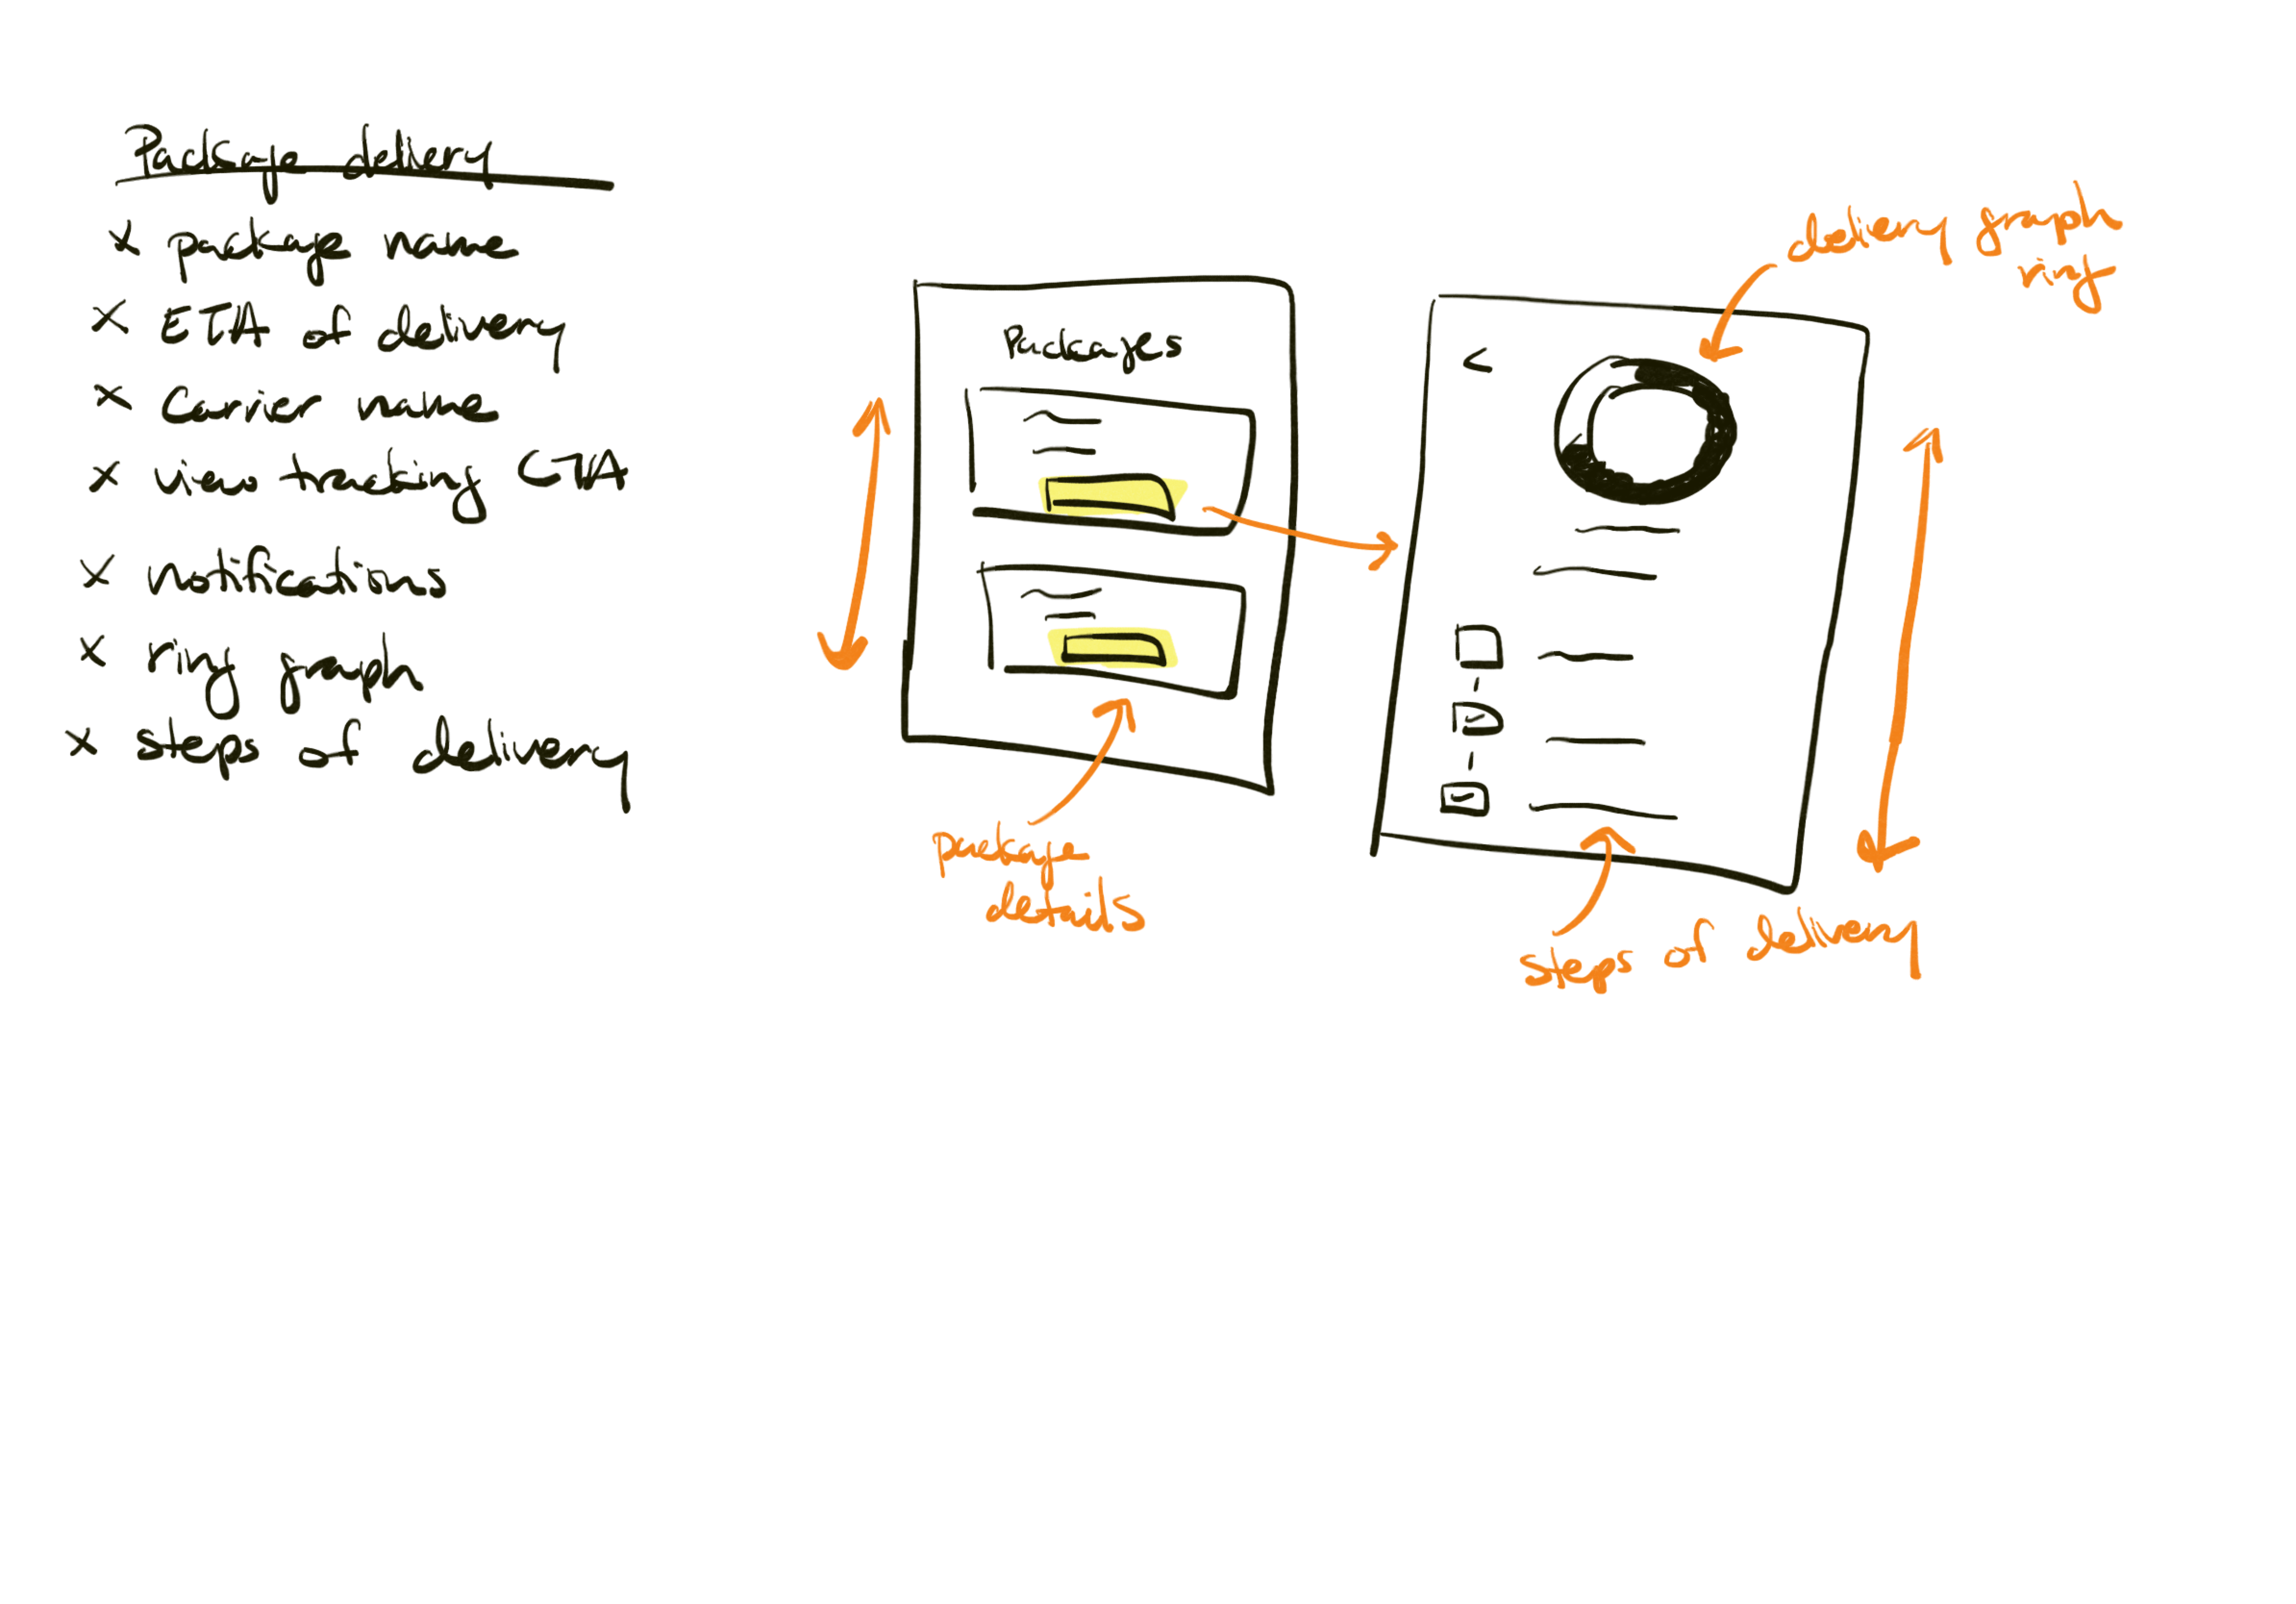 Package delivery
x package name
x ETA of delivery
x Carrier name
x view tracking CTA
x notifications
x ring graph
x steps of delivery
Packages
package
details
<
delivery graph
ring
steps of delivery